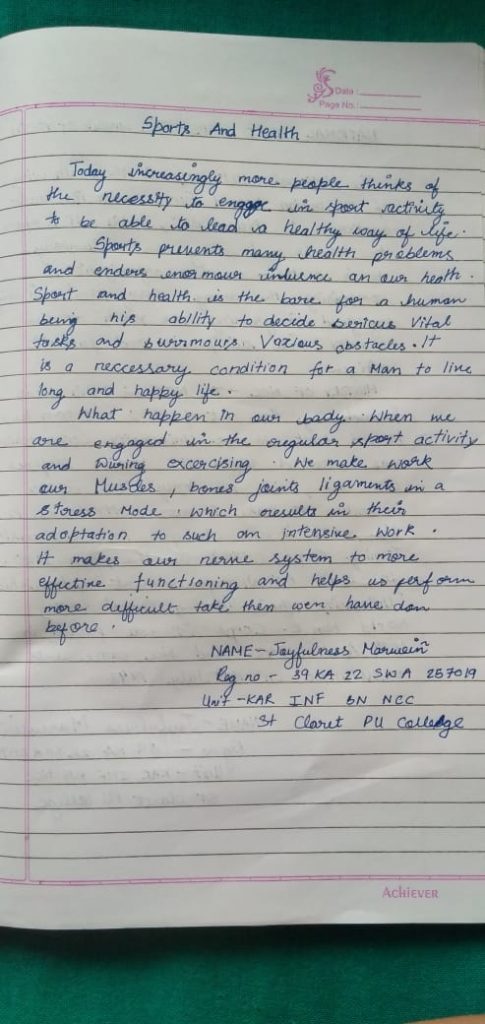 Date :
Page No. :
Sports And Health
Today increasingly more people thinks of
the necessity to engage in sport activity
to be able to lead a healthy way of life.
Sports prevents many health problems
and enders enormour influence an our health.
Sport and health is the bare for a human
being his ability to decide sericus Vital
tasks and burrmours. Various obstacles. It
is a neccessary condition for a Man to live
long and happy life.
What happen in our body. When we
are engaged in the regular sport activity
and During excercising. We make work
our Muscles, bones joints ligaments in a
stress Mode. which results in their
adoptation to such an intensive work.
It makes our nerve system to more
effective functioning and helps us perform
more difficult take then wen have don
before.
NAME - Joyfulness Marwein
Reg no - 39 KA 22 SWA 257019
Unit - KAR INF BN NCC
St Claret PU College
ACHIEVER